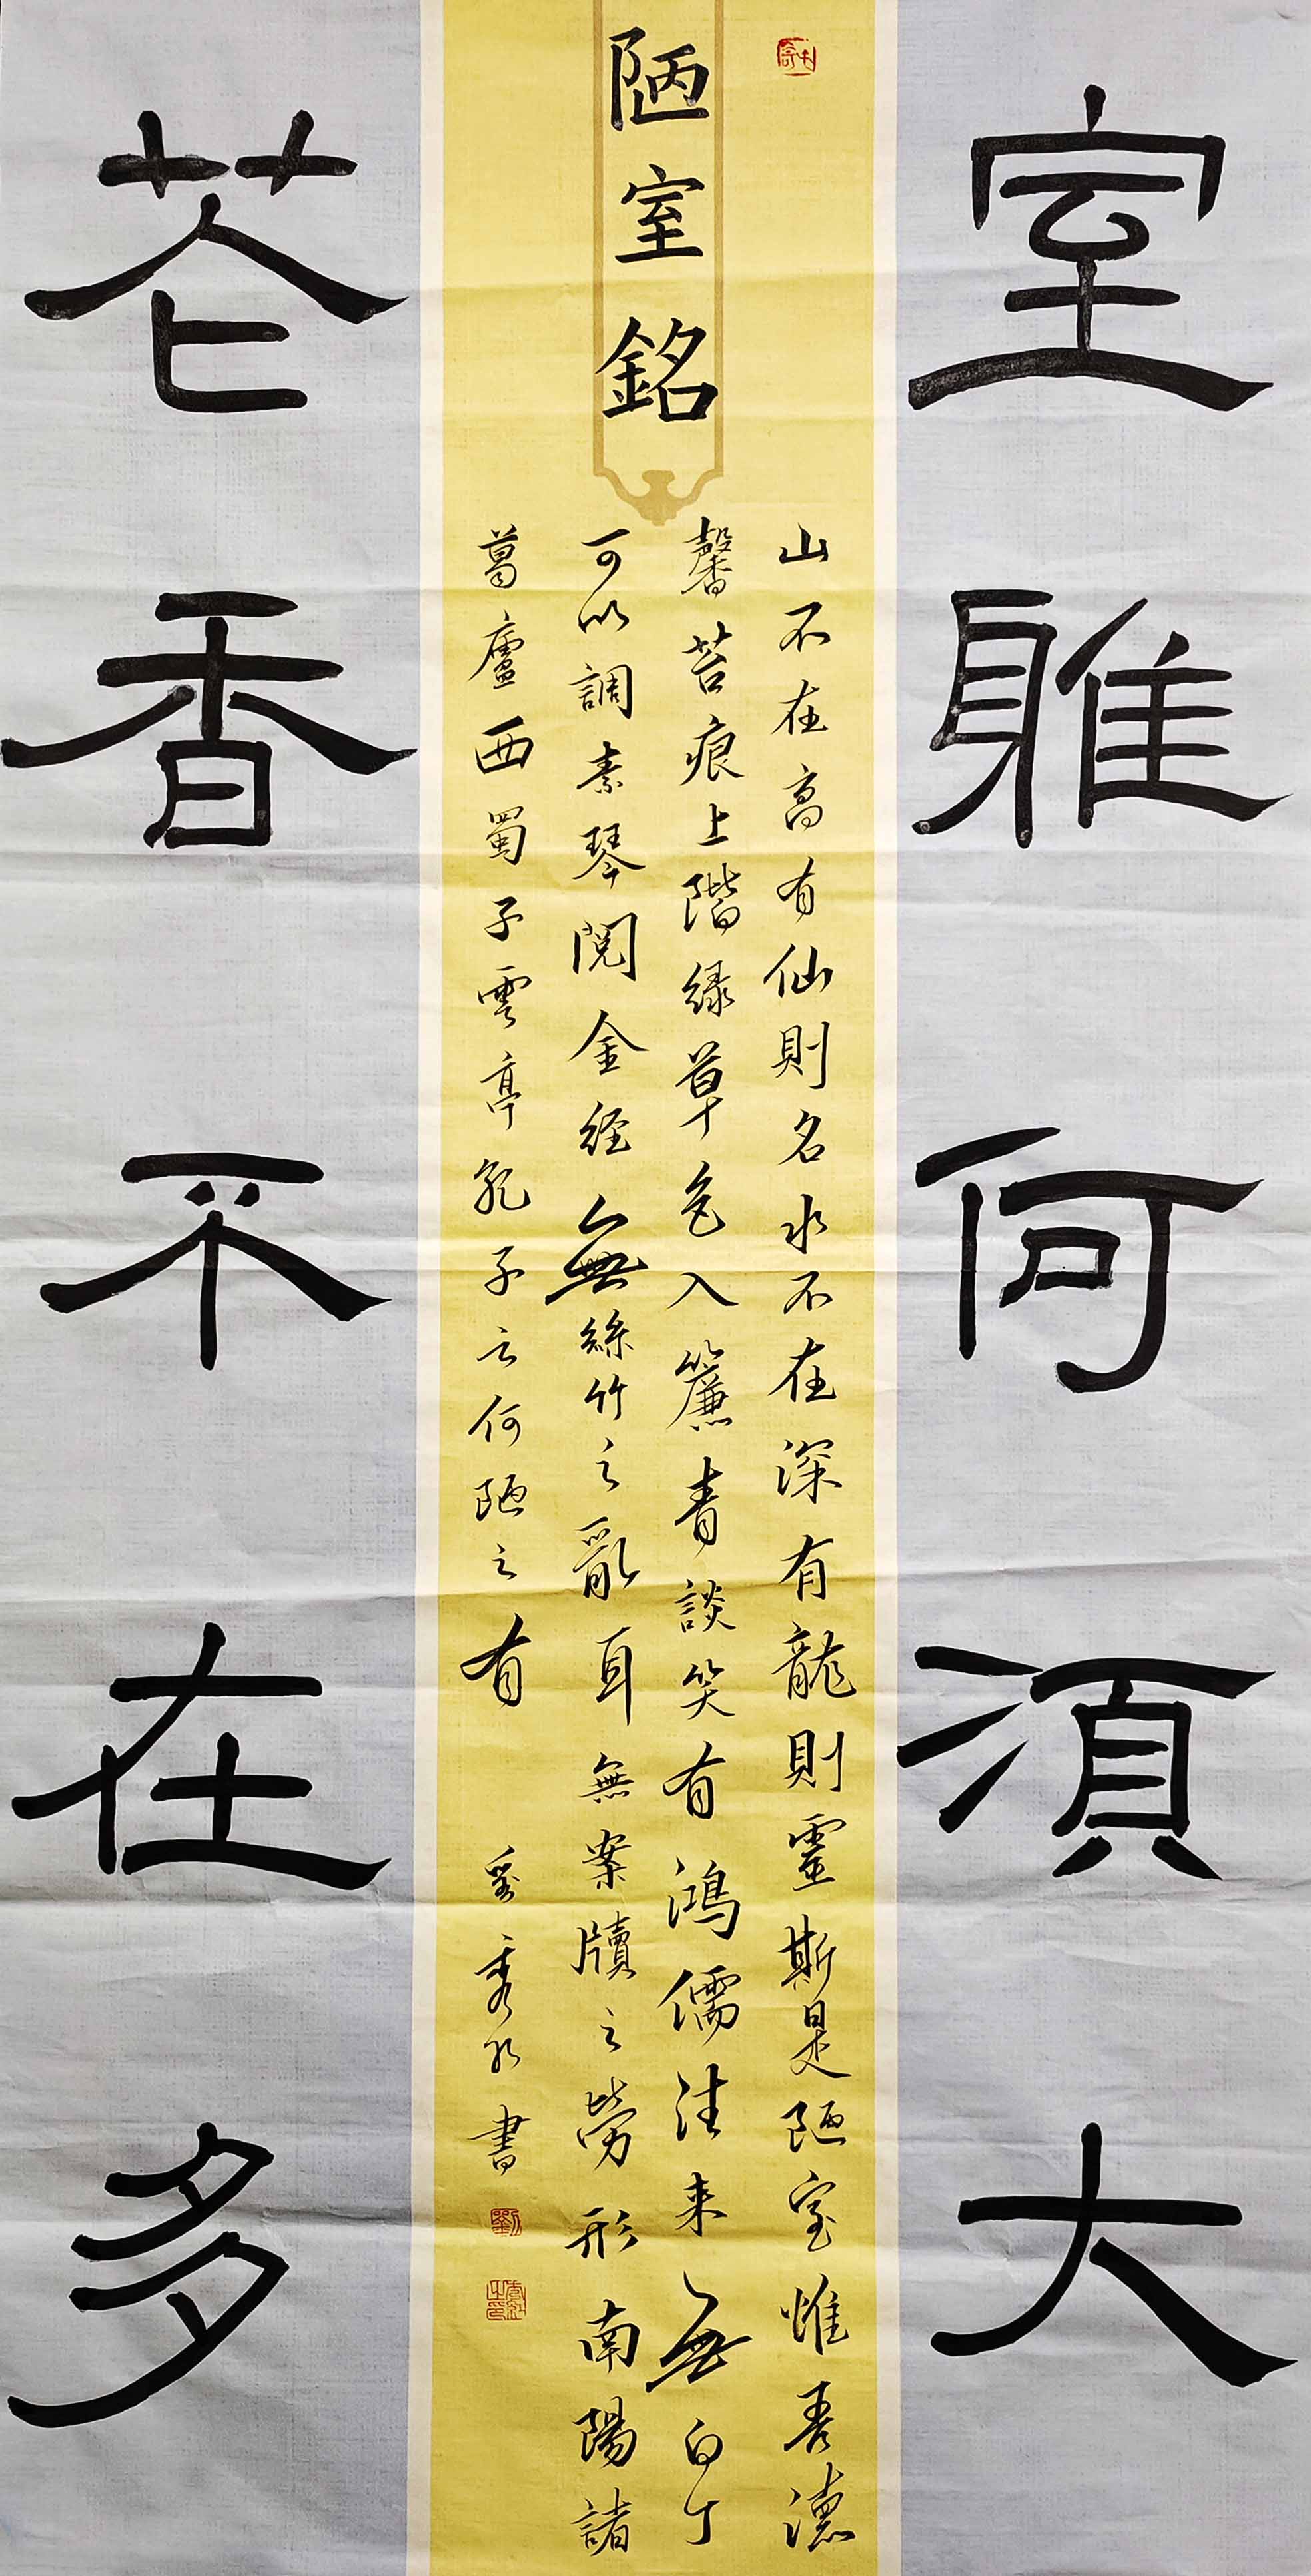 室雅何須大
陋室銘
山不在高有仙則名水不在深有龍則靈斯是陋室惟吾德
馨苔痕上階绿草色入簾青談笑有鴻儒往来無白丁
可以調素琴閱金経無絲竹之亂耳無案牘之勞形南陽諸
葛廬西蜀子雲亭孔子云何陋之有
劉秀書
劉
花香不在多